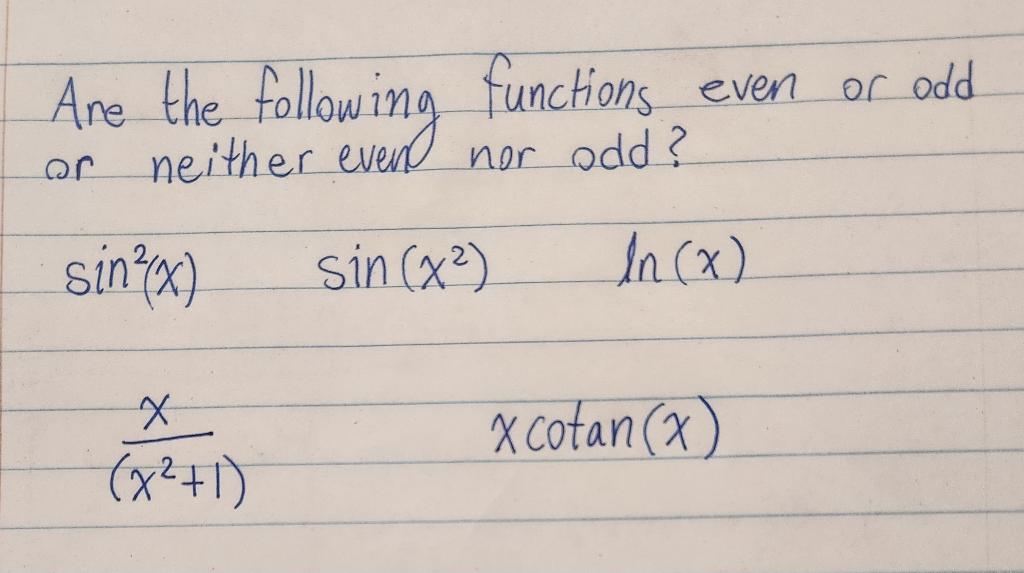 Are the following functions even or odd
or neither even nor odd?
sin²(x) sin(x²) ln(x)
x
(x²+1)
x cotan(x)